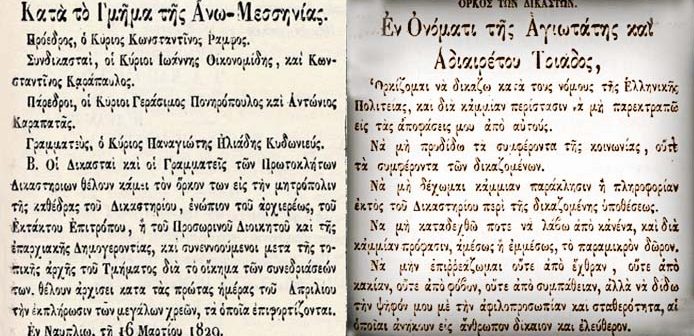 Κατὰ τὸ Γμῆμα τῆς Ἄνω-Μεσσηνίας.
Πρόεδρος, ὁ Κύριος Κωνσταντῖνος Ράμφος.
Συνδικασταὶ, οἱ Κύριοι Ἰωάννης Οἰκονομίδης, καὶ Κων-
σταντῖνος Καράπαυλος.
Πάρεδροι, οἱ Κύριοι Γεράσιμος Πονηρόπουλος καὶ Ἀντώνιος
Καραπατᾶς.
Γραμματεὺς, ὁ Κύριος Παναγιώτης Ἠλιάδης Κυδωνιεύς.
Β. Οἱ Δικασταὶ καὶ οἱ Γραμματεῖς τῶν Πρωτοκλήτων
Δικαστηρίων θέλουν κάμει τὸν ὅρκον των εἰς τὴν μητρόπολιν
τῆς καθέδρας τοῦ Δικαστηρίου, ἐνώπιον τοῦ ἀρχιερέως, τοῦ
Ἐκτάκτου Ἐπιτρόπου, ἢ τοῦ Προσωρινοῦ Διοικητοῦ καὶ τῆς
ἐπαρχιακῆς Δημογεροντίας, καὶ συνεννοούμενοι μετὰ τῆς το-
πικῆς ἀρχῆς τοῦ Τμήματος διὰ τὸ οἴκημα τῶν συνεδριάσεών
των, θέλουν ἀρχίσει κατὰ τὰς πρώτας ἡμέρας τοῦ Ἀπριλίου
τὴν ἐκπλήρωσιν τῶν μεγάλων χρεῶν, τὰ ὁποῖα ἐπιφορτίζονται.
Ἐν Ναυπλίῳ, τῇ 16 Μαρτίου 1830.
ΟΡΚΟΣ ΤΩΝ ΔΙΚΑΣΤΩΝ.
Ἐν Ὀνόματι τῆς Ἁγιωτάτης καὶ
Ἀδιαιρέτου Τριάδος,
Ὁρκίζομαι νὰ δικάζω κατὰ τοὺς νόμους τῆς Ἑλληνικῆς
Πολιτείας, καὶ διὰ κἀμμίαν περίστασιν νὰ μὴ παρεκτραπῶ
εἰς τὰς ἀποφάσεις μου ἀπὸ αὐτούς.
Νὰ μὴ προδίδω τὰ συμφέροντα τῆς κοινωνίας, οὔτε
τὰ συμφέροντα τῶν δικαζομένων.
Νὰ μὴ δέχωμαι κἀμμίαν παράκλησιν ἢ πληροφορίαν
ἐκτὸς τοῦ Δικαστηρίου περὶ τῆς δικαζομένης ὑποθέσεως.
Νὰ μὴ καταδεχθῶ ποτὲ νὰ λάβω ἀπὸ κανένα, καὶ διὰ
κἀμμίαν πρόφασιν, ἀμέσως ἢ ἐμμέσως, τὸ παραμικρὸν δῶρον.
Νὰ μὴν ἐπιρρεάζωμαι οὔτε ἀπὸ ἔχθραν, οὔτε ἀπὸ
κακίαν, οὔτε ἀπὸ φόβον, οὔτε ἀπὸ συμπάθειαν, ἀλλὰ νὰ δίδω
τὴν ψῆφόν μου μὲ τὴν ἀφιλοπροσωπίαν καὶ σταθερότητα, αἱ
ὁποῖαι ἀνήκουν εἰς ἄνθρωπον δίκαιον καὶ ἐλεύθερον.